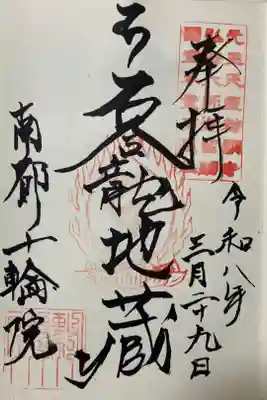 奉拝
令和八年
三月二十九日
石龕地蔵
南都十輪院